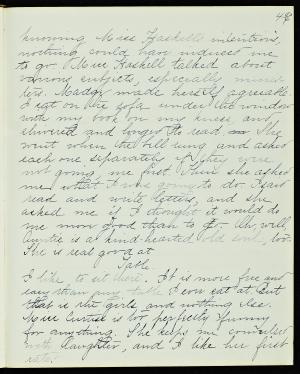 48
knowing Miss Haskell's intentions,
nothing could have induced me
to go. Miss Haskell talked about
various subjects, especially minis
ters. Madge made herself agreeable.
I sat on the sofa under the window
with my book on my knees, and
shivered and longed to read. She
went when the bell rung, and asked
each one separately if they were
not going, me first. Then she asked
me what I was going to do. I said
read and write letters, and she
asked me if I thought it would do
me more good than to go. Ah, well,
Auntie is a kind-hearted old soul, too.
She is real good at
Table
I like to sit there. It is more free and
easy than any table I ever eat at. But
that is the girls, and nothing else.
Miss Curtis is too perfectly funny
for anything. She keeps me convulsed
with laughter, and I like her first
rate.